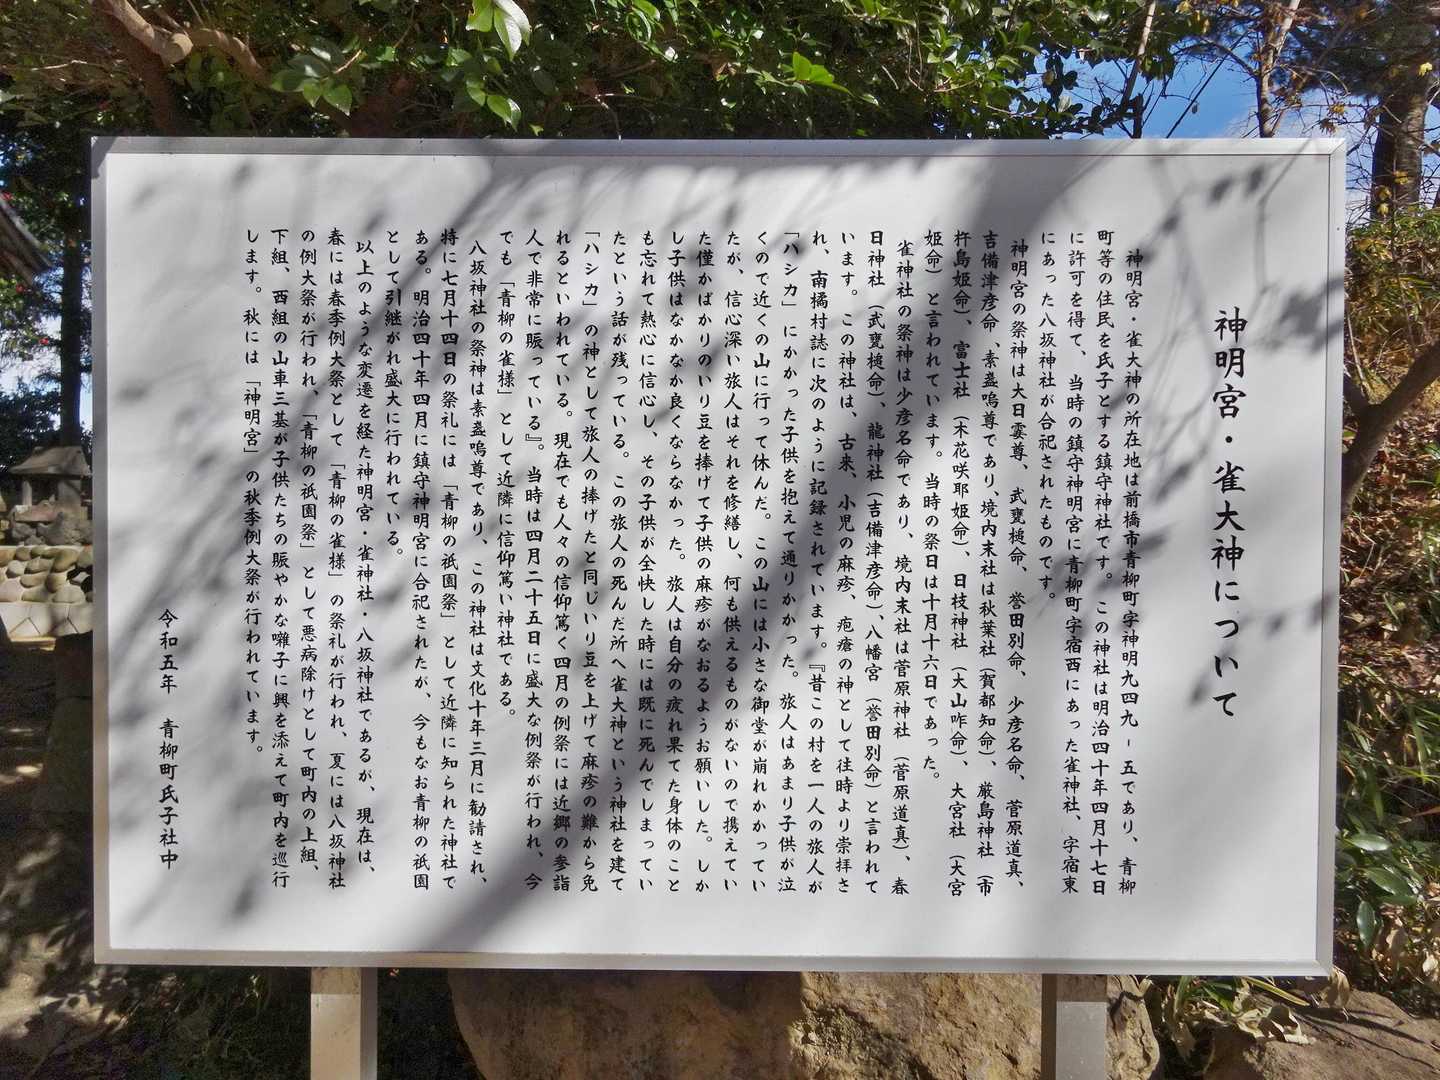 神明宮・雀大神について
神明宮・雀大神の所在地は前橋市青柳町字神明九四九－五であり、青柳
町等の住民を氏子とする鎮守神社です。この神社は明治四十年四月十七日
に許可を得て、当時の鎮守神明宮に青柳町字宿西にあった雀神社、字宿東
にあった八坂神社が合祀されたものです。
神明宮の祭神は大日孁尊、武甕槌命、誉田別命、少彦名命、菅原道真、
吉備津彦命、素盞嗚尊であり、境内末社は秋葉社（賀都知命）、厳島神社（市
杵島姫命）、富士社（木花咲耶姫命）、日枝神社（大山咋命）、大宮社（大宮
姫命）と言われています。当時の祭日は十月十六日であった。
雀神社の祭神は少彦名命であり、境内末社は菅原神社（菅原道真）、春
日神社（武甕槌命）、龍神社（吉備津彦命）、八幡宮（誉田別命）と言われて
います。この神社は、古来、小児の麻疹、疱瘡の神として往時より崇拝さ
れ、南橘村誌に次のように記録されています。『昔この村を一人の旅人が
「ハシカ」にかかった子供を抱えて通りかかった。旅人はあまり子供が泣
くので近くの山に行って休んだ。この山には小さな御堂が崩れかかってい
たが、信心深い旅人はそれを修繕し、何も供えるものがないので携えてい
た僅かばかりのいり豆を捧げて子供の麻疹がなおるようお願いした。しか
し子供はなかなか良くならなかった。旅人は自分の疲れ果てた身体のこと
も忘れて熱心に信心し、その子供が全快した時には既に死んでしまってい
たという話が残っている。この旅人の死んだ所へ雀大神という神社を建て
「ハシカ」の神として旅人の捧げたと同じいり豆を上げて麻疹の難から免
れるといわれている。現在でも人々の信仰篤く四月の例祭には近郷の参詣
人で非常に賑っている』。当時は四月二十五日に盛大な例祭が行われ、今
でも「青柳の雀様」として近隣に信仰篤い神社である。
八坂神社の祭神は素盞嗚尊であり、この神社は文化十年三月に勧請され、
特に七月十四日の祭礼には「青柳の祇園祭」として近隣に知られた神社で
ある。明治四十年四月に鎮守神明宮に合祀されたが、今もなお青柳の祇園
として引継がれ盛大に行われている。
以上のような変遷を経た神明宮・雀神社・八坂神社であるが、現在は、
春には春季例大祭として「青柳の雀様」の祭礼が行われ、夏には八坂神社
の例大祭が行われ、「青柳の祇園祭」として悪病除けとして町内の上組、
下組、西組の山車三基が子供たちの賑やかな囃子に興を添えて町内を巡行
します。秋には「神明宮」の秋季例大祭が行われています。
令和五年　青柳町氏子社中